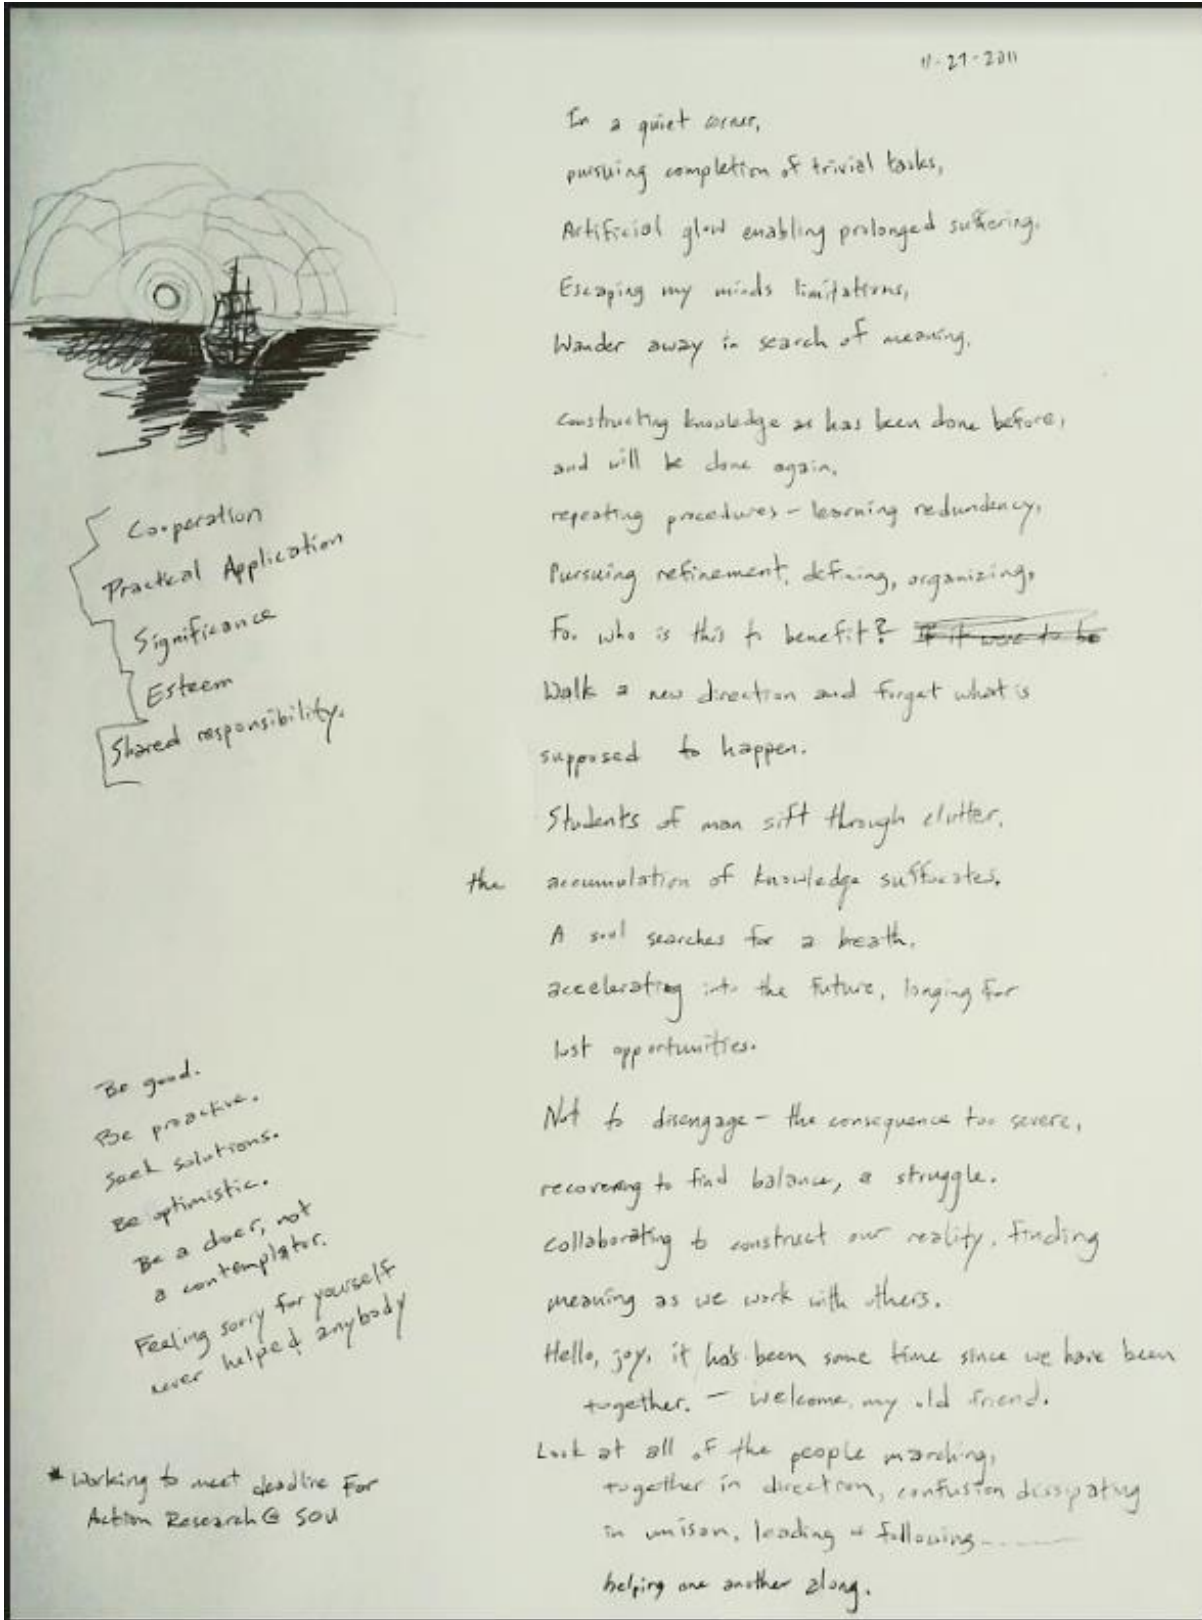 11-27-2011
In a quiet corner,
pursuing completion of trivial tasks,
Artificial glow enabling prolonged suffering.
Escaping my minds limitations,
Wander away in search of meaning.
constructing knowledge as has been done before,
and will be done again.
repeating procedures - learning redundancy.
Pursuing refinement, defining, organizing.
For who is this to benefit? If it were to be
Walk a new direction and forget what is
supposed to happen.
Students of man sift through clutter.
the accumulation of knowledge suffocates.
A soul searches for a breath.
accelerating into the future, longing for
lost opportunities.
Not to disengage - the consequence too severe,
recovering to find balance, a struggle.
collaborating to construct our reality. Finding
meaning as we work with others.
Hello, joy, it has been some time since we have been
together. - welcome, my old friend.
Look at all of the people marching,
together in direction, confusion dissipating
in unison, leading + following
helping one another along.
Cooperation
Practical Application
Significance
Esteem
Shared responsibility.
Be good.
Be proactive.
Seek solutions.
Be optimistic.
Be a doer, not
a contemplator.
Feeling sorry for yourself
never helped anybody
* Working to meet deadline For
Action Research @ SOU